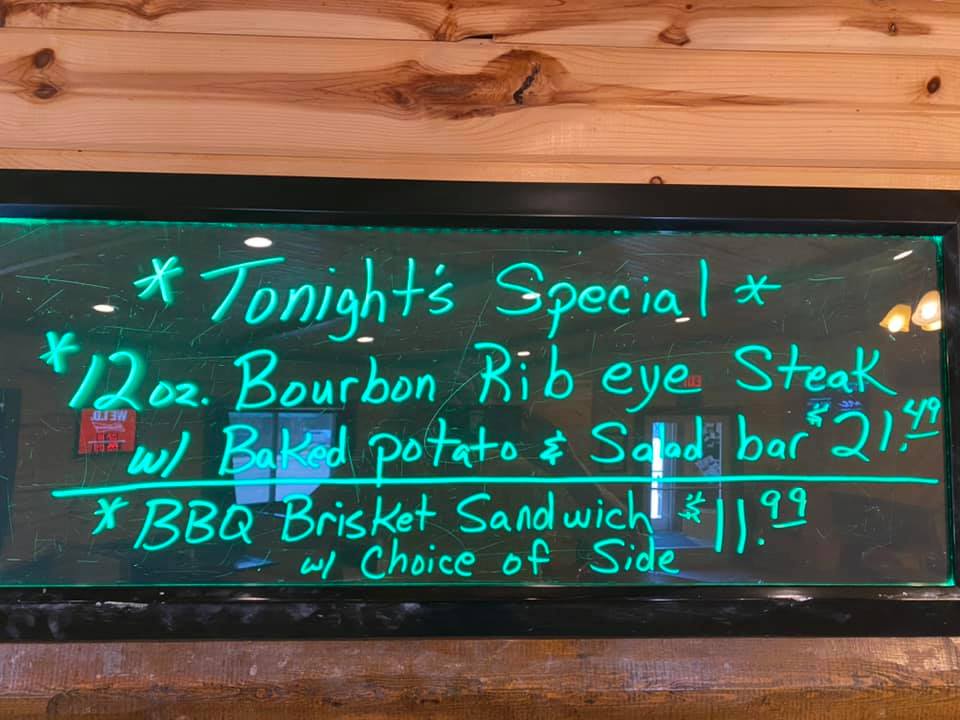 * Tonight's Special *
* 12 oz. Bourbon Rib eye Steak
w/ Baked potato & Salad bar $21.49
* BBQ Brisket Sandwich $11.99
w/ Choice of Side
EXIT